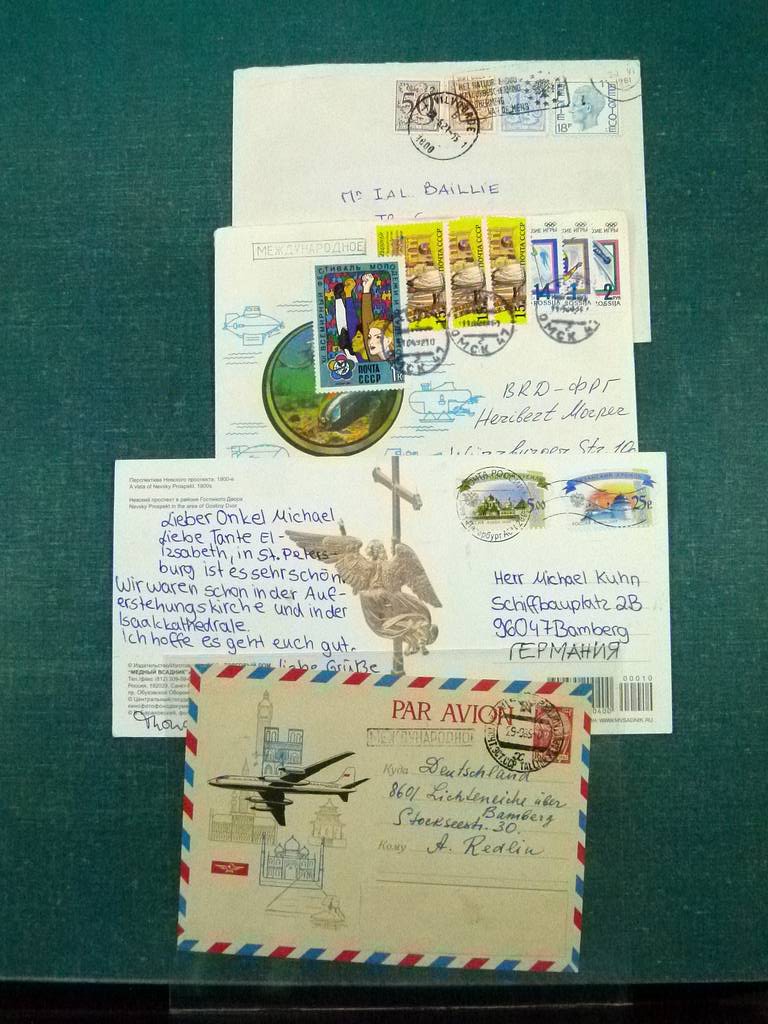 50
18F
1981
1000
Mr IAL. BAILLIE
МЕЖДУНАРОДНОЕ
ПОЧТА СССР
ПОЧТА СССР
ПОЧТА СССР
15
15
15
ROSSIJA
14
1
2
XII ВСЕМИРНЫЙ ФЕСТИВАЛЬ МОЛОДЕЖИ И
ПОЧТА
СССР
1К
ОМСК 41
ОМСК 41
ОМСК 41
BRD-ФРГ
Heribert
Würzburger Str.
Перспектива Невского проспекта. 1900-е
A vista of Nevsky Prospekt. 1900s
Невский проспект в районе Гостиного Двора
Nevsky Prospekt in the area of Gostiny Dvor
Lieber Onkel Michael
Liebe Tante El-
izsabeth, in St. Peters-
burg ist es sehr schön.
Wir waren schon in der Auf-
erstehungskirche und in der
Isaakkathedrale.
Ich hoffe es geht euch gut.
liebe Grüße
5,00
25р.
Herr Michael Kuhn
Schiffbauplatz 2B
96047 Bamberg
ГЕРМАНИЯ
"МЕДНЫЙ ВСАДНИК"
00010
WWW.MVSADNIK.RU
PAR AVION
МЕЖДУНАРОДНОЕ
TALLINN
Куда Deutschland
8601 Lichteneiche über
Bamberg
Stockseestr. 30.
Кому A. Redlin